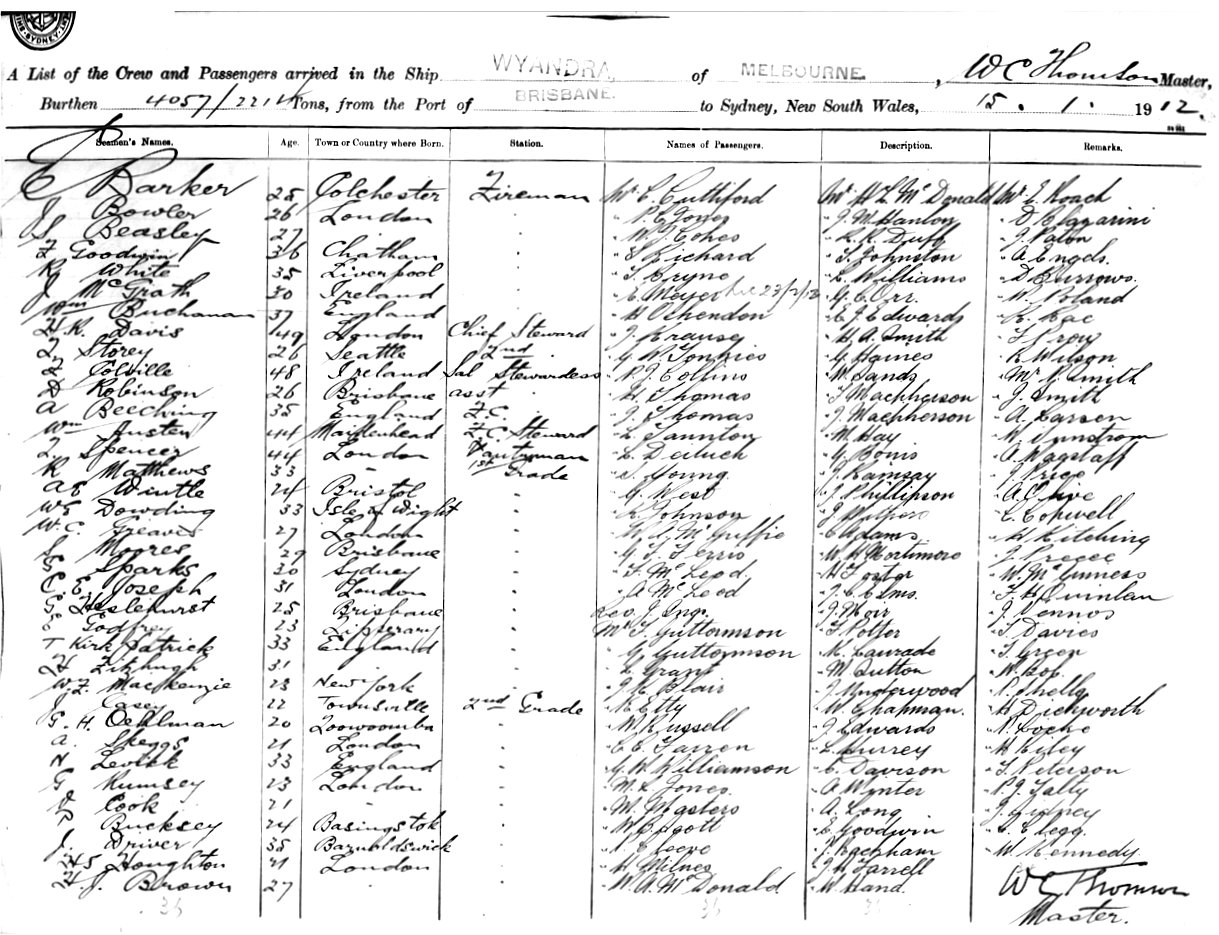 SYDNEY
A List of the Crew and Passengers arrived in the Ship WYANDRA of MELBOURNE, W C Thomson Master,
Burthen 4057/2214 Tons, from the Port of BRISBANE to Sydney, New South Wales, 15 . 1 . 1912.
Seamen's Names. Age. Town or Country where Born. Station. Names of Passengers. Description. Remarks.
C Barker 25 Colchester Fireman Mr C Cuttiford Mr H L McDonald Mr E Roach
J Bowler 26 London " P C Jones " J M Hanlon
S Beasley 27 " " W J Cohes " L R Duff " J Paton
F Goodwin 36 Chatham " E Richard " T Johnston " A Engels
R White 35 Liverpool " T Bryne " L Williams " D Burrows
J McGrath 30 Ireland " E Meyer 23/2/12 " G C Orr " W Noland
Wm Buchanan 37 England " H Oshendon " E J Edwards " R Rae
H. R. Davis 49 London Chief Steward " J Krause " H A Smith " T Troy
F Storey 26 Seattle 2nd " " G W Tonkies " G Haines " R Wilson
Colville 48 Ireland Sal Stewardess " P J Collins " W Sands Mr R Smith
D Robinson 26 Brisbane asst " " H Thomas " T Macpherson " J Smith
A Beeching 35 England F.C. " J Thomas " J Macpherson " A Larsen
Wm Austen 44 Maidenhead F.C. Steward " L Taunton " M Hay
F Spencer 44 London Pantryman " G Bonis " A Wagstaff
R Matthews 33 " 1st Grade " S Young " J Ramsay " J Price
A E Wintle 24 Bristol " " G West " J Phillipson " A Clive
W E Dowding 33 Isle of Wight " " Johnson " C Conwell
W. C. Greaves 27 London " " W A McGuffie " C Adams " H Kitching
S Moores 29 Brisbane " " G T Ferris " W H Mortimore
E Sparks 30 Sydney " " T McLeod " H Foster " W McGuiness
C. E. Joseph 31 London " " A McLeod " J C Elms " F H Quinlan
G Heslehurst 25 Brisbane " J Moir " J Lennos
E Godfrey 23 Tipperary " Mr T Guttormson " T Potter " T Davies
T Kirkpatrick 33 England " " G Guttormson " M Laurade " T Green
H Fitzhugh 31 " " " L Grant " M Sutton
W. F. Mackenzie 23 New York " " J E Blair " J Underwood " R Shelly
J Casey 22 Townsville 2nd Grade " R Etty " W Chapman " H Duckworth
G. H. Oehlman 20 Toowoomba " " W Russell " J Edwards " R Locke
A. Skeggs 21 London " " C E Farren " L Surrey " H Riley
N Levick 33 England " " G W Williamson " C Davison " T Peterson
G Rumsey 23 London " " M L Jones " A Winter " P J Tally
J Cook 21 " " " M Masters " A Long " J Gidney
P Bucksey 24 Basingstok " " W B Scott " E Goodwin " C Clegg
J. Driver 35 Barnoldswick " " R Cleeve " J Rackham " W Kennedy
H S Houghton 21 London " " H Milner " J H Farrell
H. J. Brown 27 " " " W A McDonald " W Hand W C Thomson
36 36 36 Master.